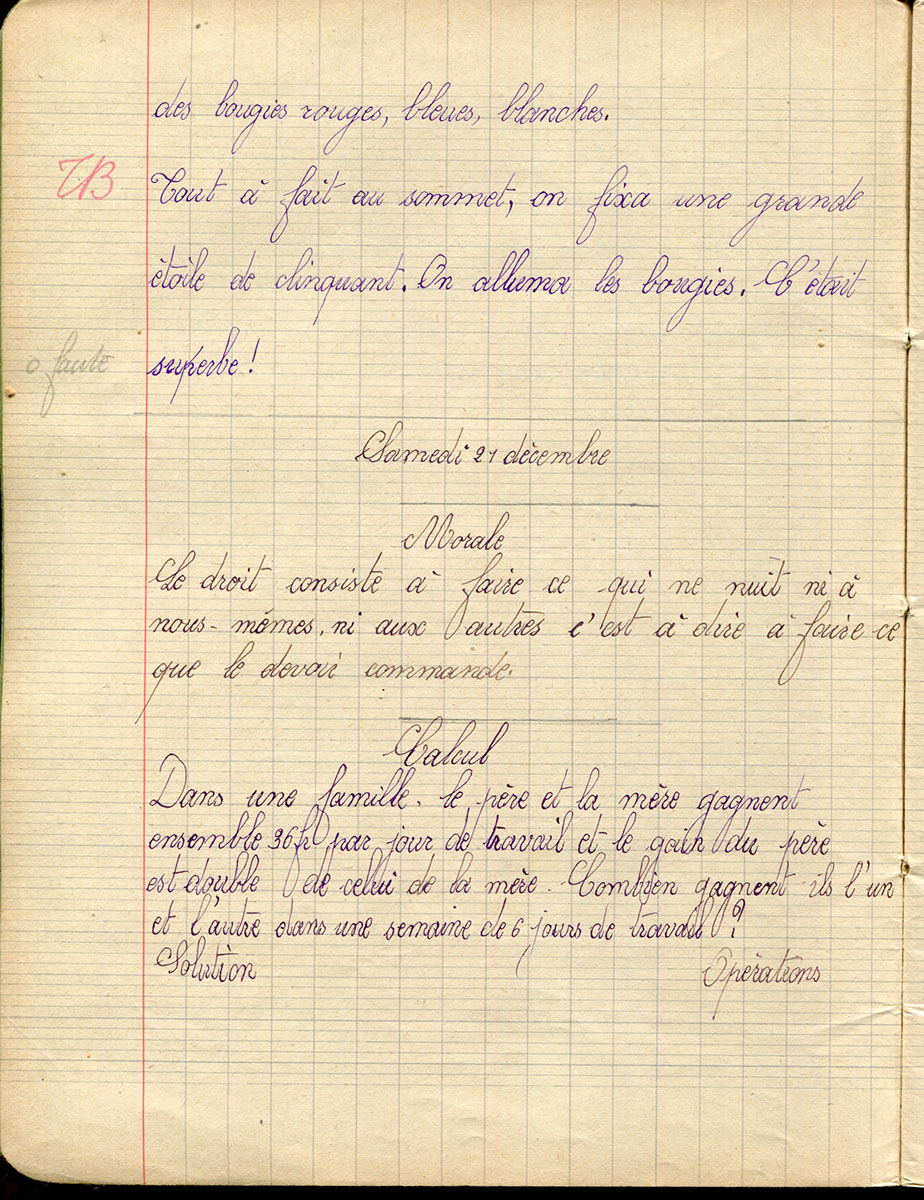 des bougies rouges, bleues, blanches.
TB
Tout à fait au sommet, on fixa une grande
étoile de clinquant. On alluma les bougies. C'était
0 faute
superbe !
Samedi 21 décembre
Morale
Le droit consiste à faire ce qui ne nuit ni à
nous-mêmes, ni aux autres c'est à dire à faire ce
que le devoir commande.
Calcul
Dans une famille. le père et la mère gagnent
ensemble 36f par jour de travail et le gain du père
est double de celui de la mère. Combien gagnent-ils l'un
et l'autre dans une semaine de 6 jours de travail ?
Solution
Opérations